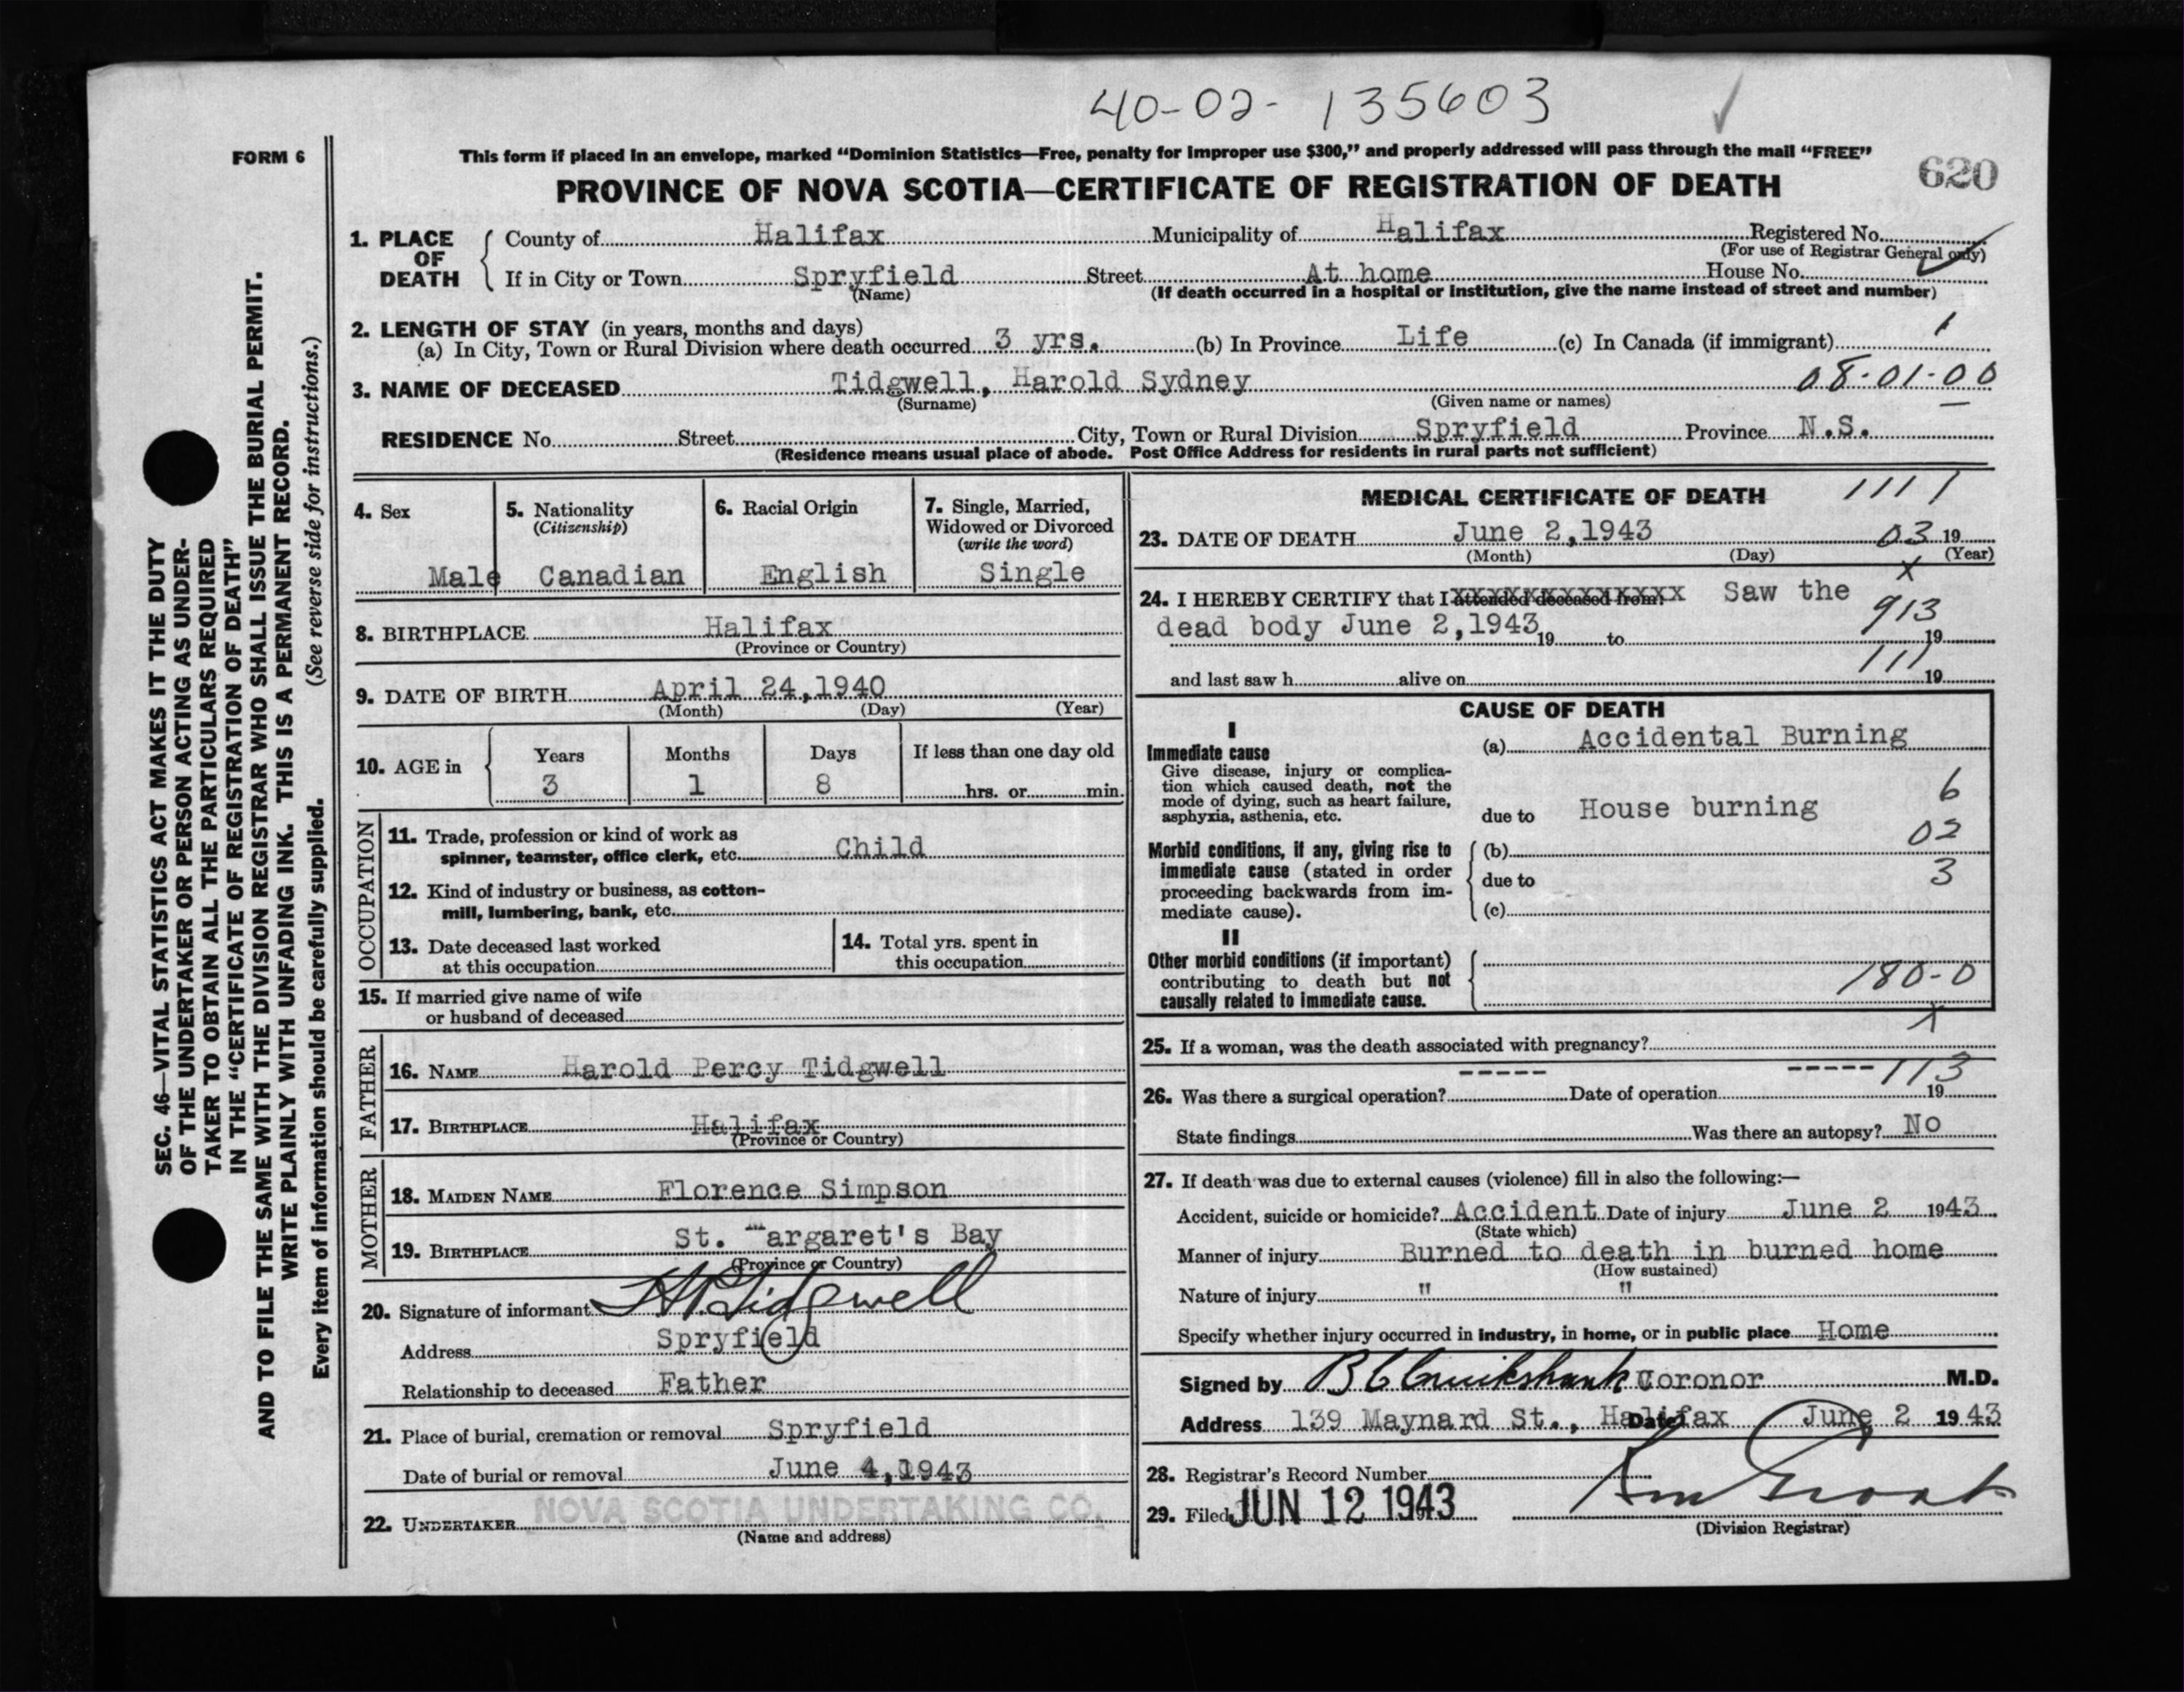 40-02-135603
FORM 6
This form if placed in an envelope, marked “Dominion Statistics—Free, penalty for improper use $300,” and properly addressed will pass through the mail “FREE”
620
PROVINCE OF NOVA SCOTIA—CERTIFICATE OF REGISTRATION OF DEATH
SEC. 46—VITAL STATISTICS ACT MAKES IT THE DUTY
OF THE UNDERTAKER OR PERSON ACTING AS UNDER-
TAKER TO OBTAIN ALL THE PARTICULARS REQUIRED
IN THE “CERTIFICATE OF REGISTRATION OF DEATH”
AND TO FILE THE SAME WITH THE DIVISION REGISTRAR WHO SHALL ISSUE THE BURIAL PERMIT.
WRITE PLAINLY WITH UNFADING INK. THIS IS A PERMANENT RECORD.
Every item of information should be carefully supplied. (See reverse side for instructions.)
1. PLACE OF DEATH County of Halifax Municipality of Halifax Registered No.
(For use of Registrar General only)
If in City or Town Spryfield Street At home House No.
(Name) (If death occurred in a hospital or institution, give the name instead of street and number)
2. LENGTH OF STAY (in years, months and days)
(a) In City, Town or Rural Division where death occurred 3 yrs. (b) In Province Life (c) In Canada (if immigrant) 1
3. NAME OF DECEASED Tidgwell, Harold Sydney 08-01-00
(Surname) (Given name or names)
RESIDENCE No. Street City, Town or Rural Division Spryfield Province N.S.
(Residence means usual place of abode. Post Office Address for residents in rural parts not sufficient)
4. Sex
Male
5. Nationality
(Citizenship)
Canadian
6. Racial Origin
English
7. Single, Married,
Widowed or Divorced
(write the word)
Single
8. BIRTHPLACE Halifax
(Province or Country)
9. DATE OF BIRTH April 24,1940
(Month) (Day) (Year)
10. AGE in Years Months Days If less than one day old
3 1 8 hrs. or min.
OCCUPATION
11. Trade, profession or kind of work as
spinner, teamster, office clerk, etc. Child
12. Kind of industry or business, as cotton-
mill, lumbering, bank, etc.
13. Date deceased last worked
at this occupation
14. Total yrs. spent in
this occupation
15. If married give name of wife
or husband of deceased
FATHER
16. NAME Harold Percy Tidgwell
17. BIRTHPLACE Halifax
(Province or Country)
MOTHER
18. MAIDEN NAME Florence Simpson
19. BIRTHPLACE St. Margaret's Bay
(Province or Country)
20. Signature of informant H P Tidgwell
Address Spryfield
Relationship to deceased Father
21. Place of burial, cremation or removal Spryfield
Date of burial or removal June 4,1943
22. UNDERTAKER NOVA SCOTIA UNDERTAKING CO.
(Name and address)
MEDICAL CERTIFICATE OF DEATH 1111
23. DATE OF DEATH June 2,1943 03 19
(Month) (Day) (Year)
x
24. I HEREBY CERTIFY that I attended deceased from: Saw the
dead body June 2,1943 19 to 913 19
and last saw h alive on 111 19
CAUSE OF DEATH
I
Immediate cause
Give disease, injury or complica-
tion which caused death, not the
mode of dying, such as heart failure,
asphyxia, asthenia, etc.
(a) Accidental Burning
due to House burning 6
Morbid conditions, if any, giving rise to
immediate cause (stated in order
proceeding backwards from im-
mediate cause).
(b) 02
due to 3
(c)
II
Other morbid conditions (if important)
contributing to death but not
causally related to immediate cause.
180-0
x
25. If a woman, was the death associated with pregnancy?
----- ----- 113
26. Was there a surgical operation? Date of operation 19
State findings Was there an autopsy? No
27. If death was due to external causes (violence) fill in also the following:—
Accident, suicide or homicide? Accident Date of injury June 2 1943
(State which)
Manner of injury Burned to death in burned home
(How sustained)
Nature of injury " "
Specify whether injury occurred in industry, in home, or in public place Home
Signed by B C Cruikshank Coronor M.D.
Address 139 Maynard St., Halifax Date June 2 1943
28. Registrar's Record Number
29. Filed JUN 12 1943
(Division Registrar)